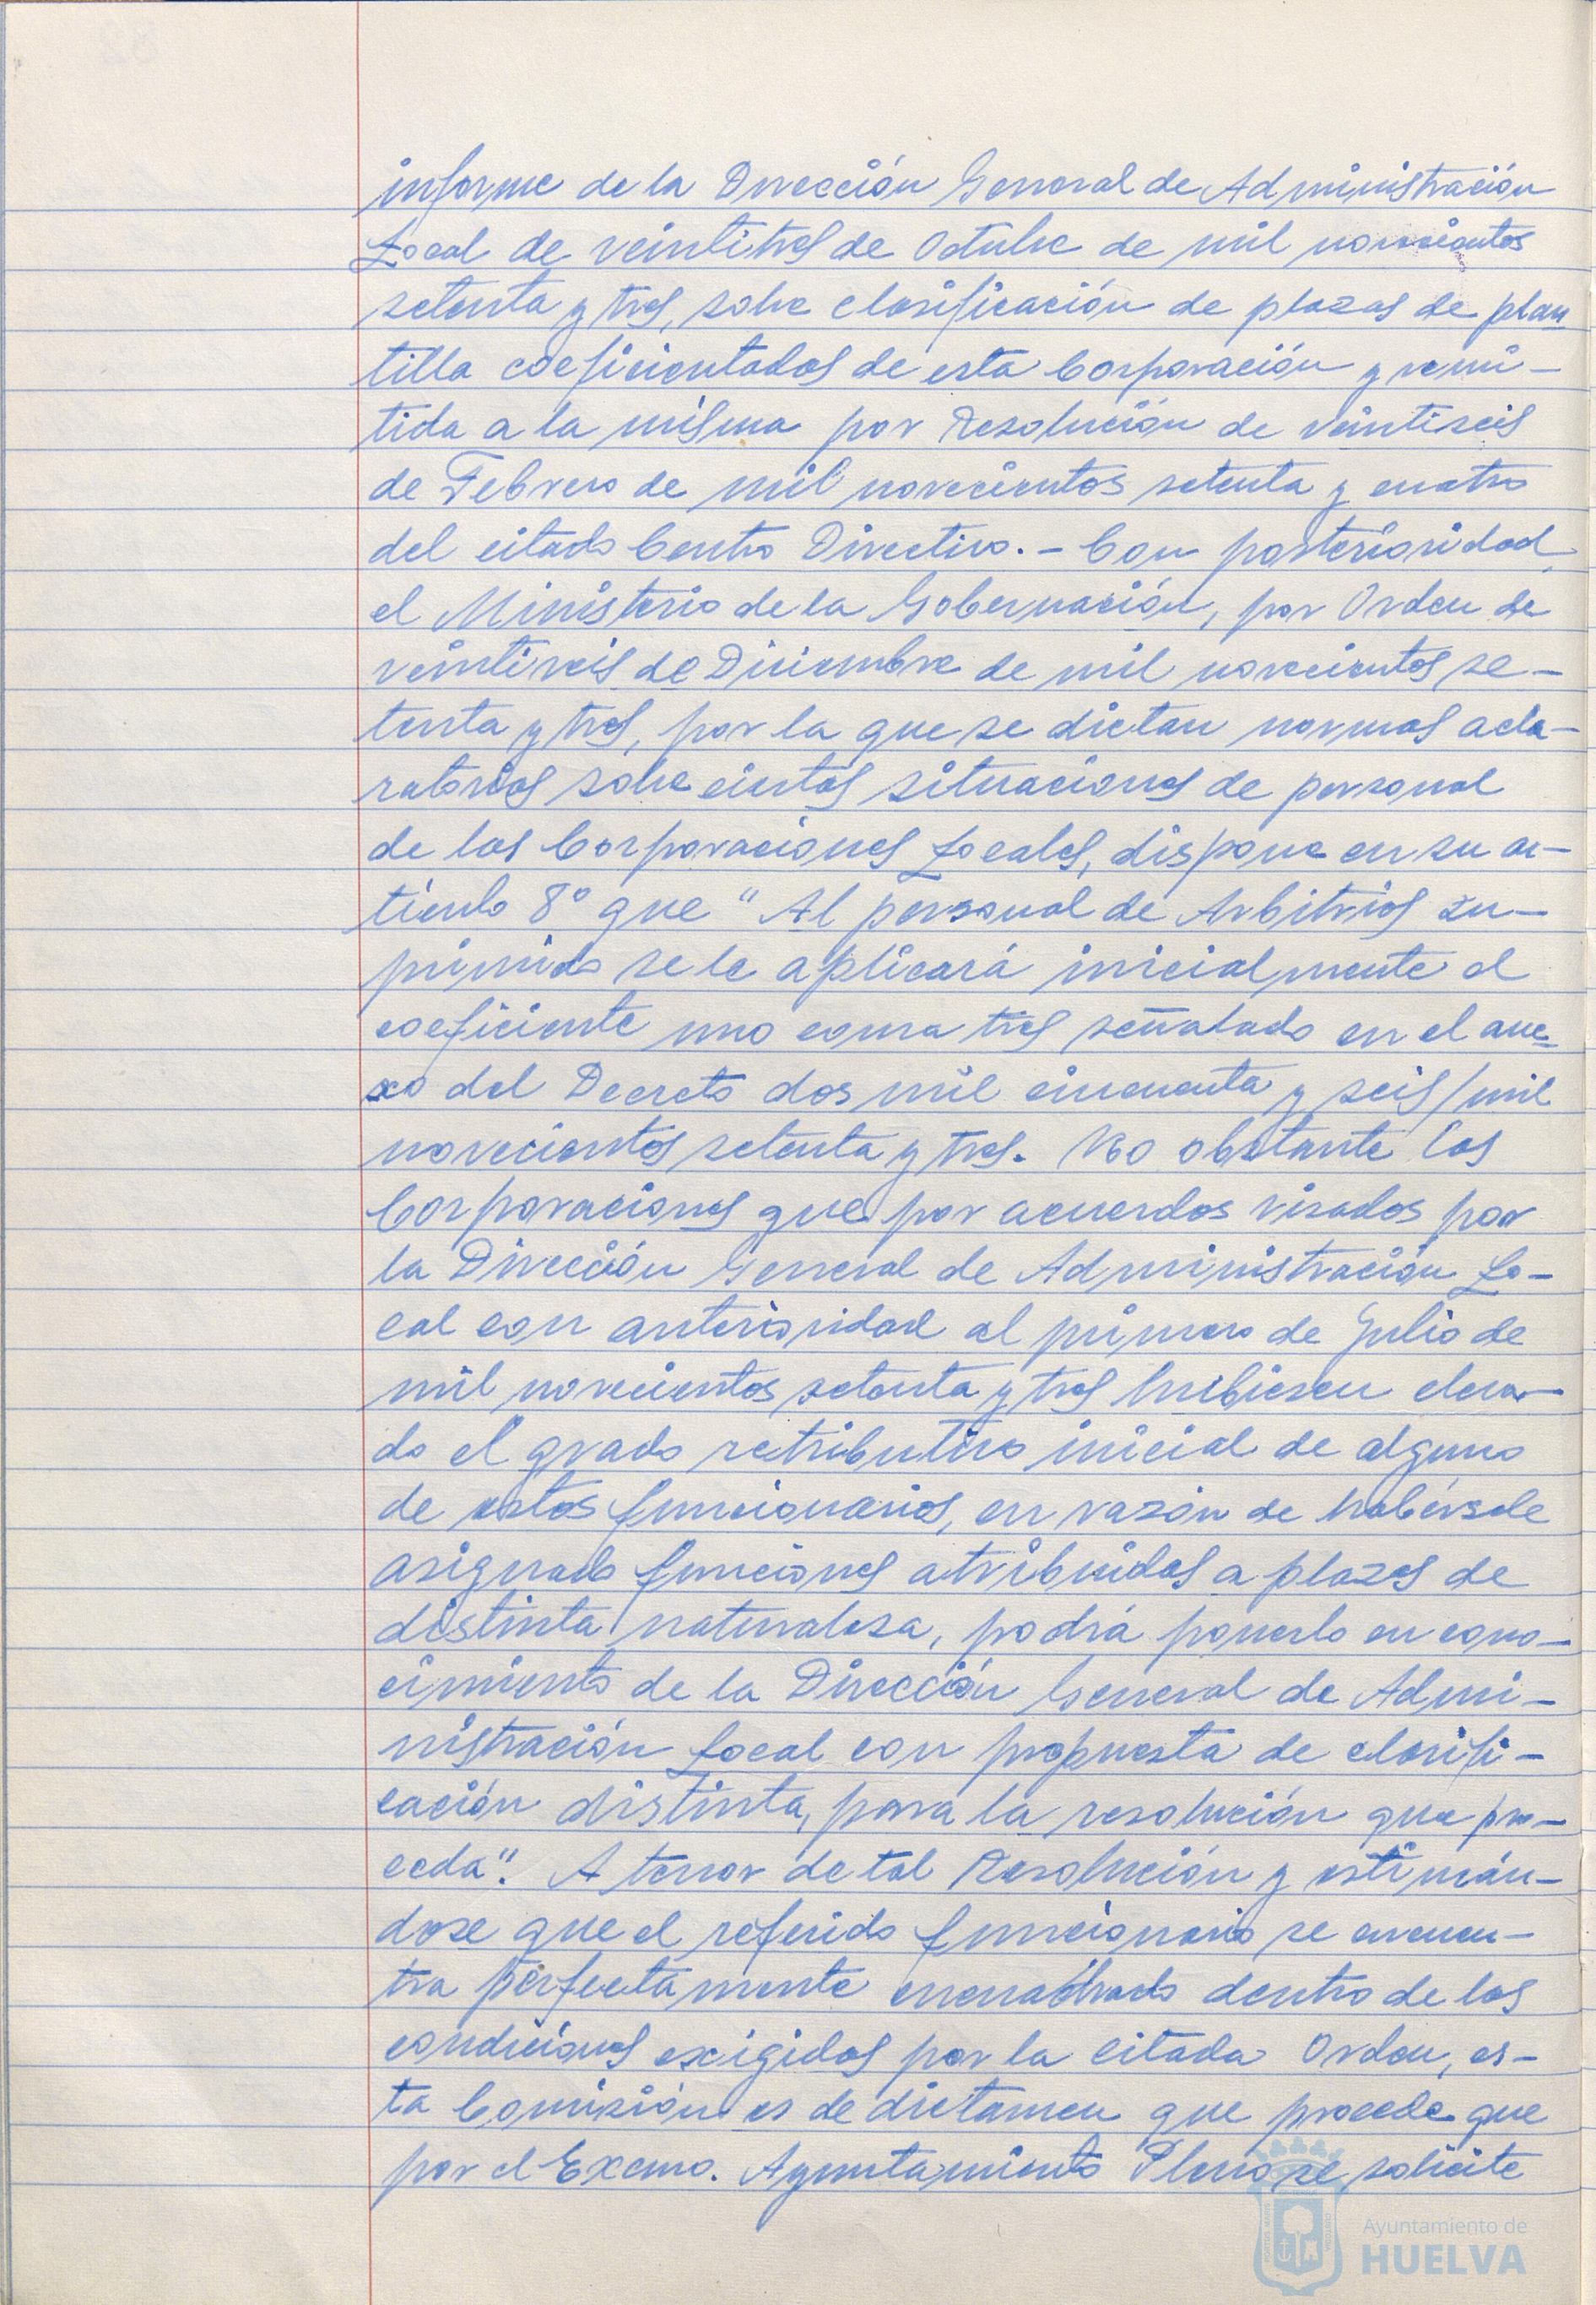 informe de la Dirección General de Administración
Local de veintitres de Octubre de mil novecientos
setenta y tres, sobre clasificación de plazas de plan
tilla coeficientados de esta Corporación y remi-
tida a la misma por Resolución de veintiseis
de Febrero de mil novecientos setenta y cuatro
del citado Centro Directivo.- Con posterioridad,
el Ministerio de la Gobernación, por Orden de
veintiseis de Diciembre de mil novecientos se-
tenta y tres, por la que se dictan normas acla-
ratorias sobre ciertas situaciones de personal
de las Corporaciones Locales, dispone en su ar-
tículo 8º que "Al personal de Arbitrios su-
primido se le aplicará inicialmente el
coeficiente uno coma tres señalado en el ane-
xo del Decreto dos mil cincuenta y seis/mil
novecientos setenta y tres. No obstante las
Corporaciones que por acuerdos visados por
la Dirección General de Administración Lo-
cal con anterioridad al primero de Julio de
mil novecientos setenta y tres hubiesen eleva-
do el grado retributivo inicial de alguno
de estos funcionarios, en razón de habérsele
asignado funciones atribuidas a plazas de
distinta naturaleza, podrá ponerlo en cono-
cimiento de la Dirección General de Admi-
nistración Local con propuesta de clasifi-
cación distinta, para la resolución que pro-
ceda". A tenor de tal Resolución y estimán-
dose que el referido funcionario se encuen-
tra perfectamente encuadrado dentro de las
condiciones exigidas por la citada Orden, es-
ta Comisión es de dictamen que procede que
por el Excmo. Ayuntamiento Pleno se solicite
Ayuntamiento de
HUELVA